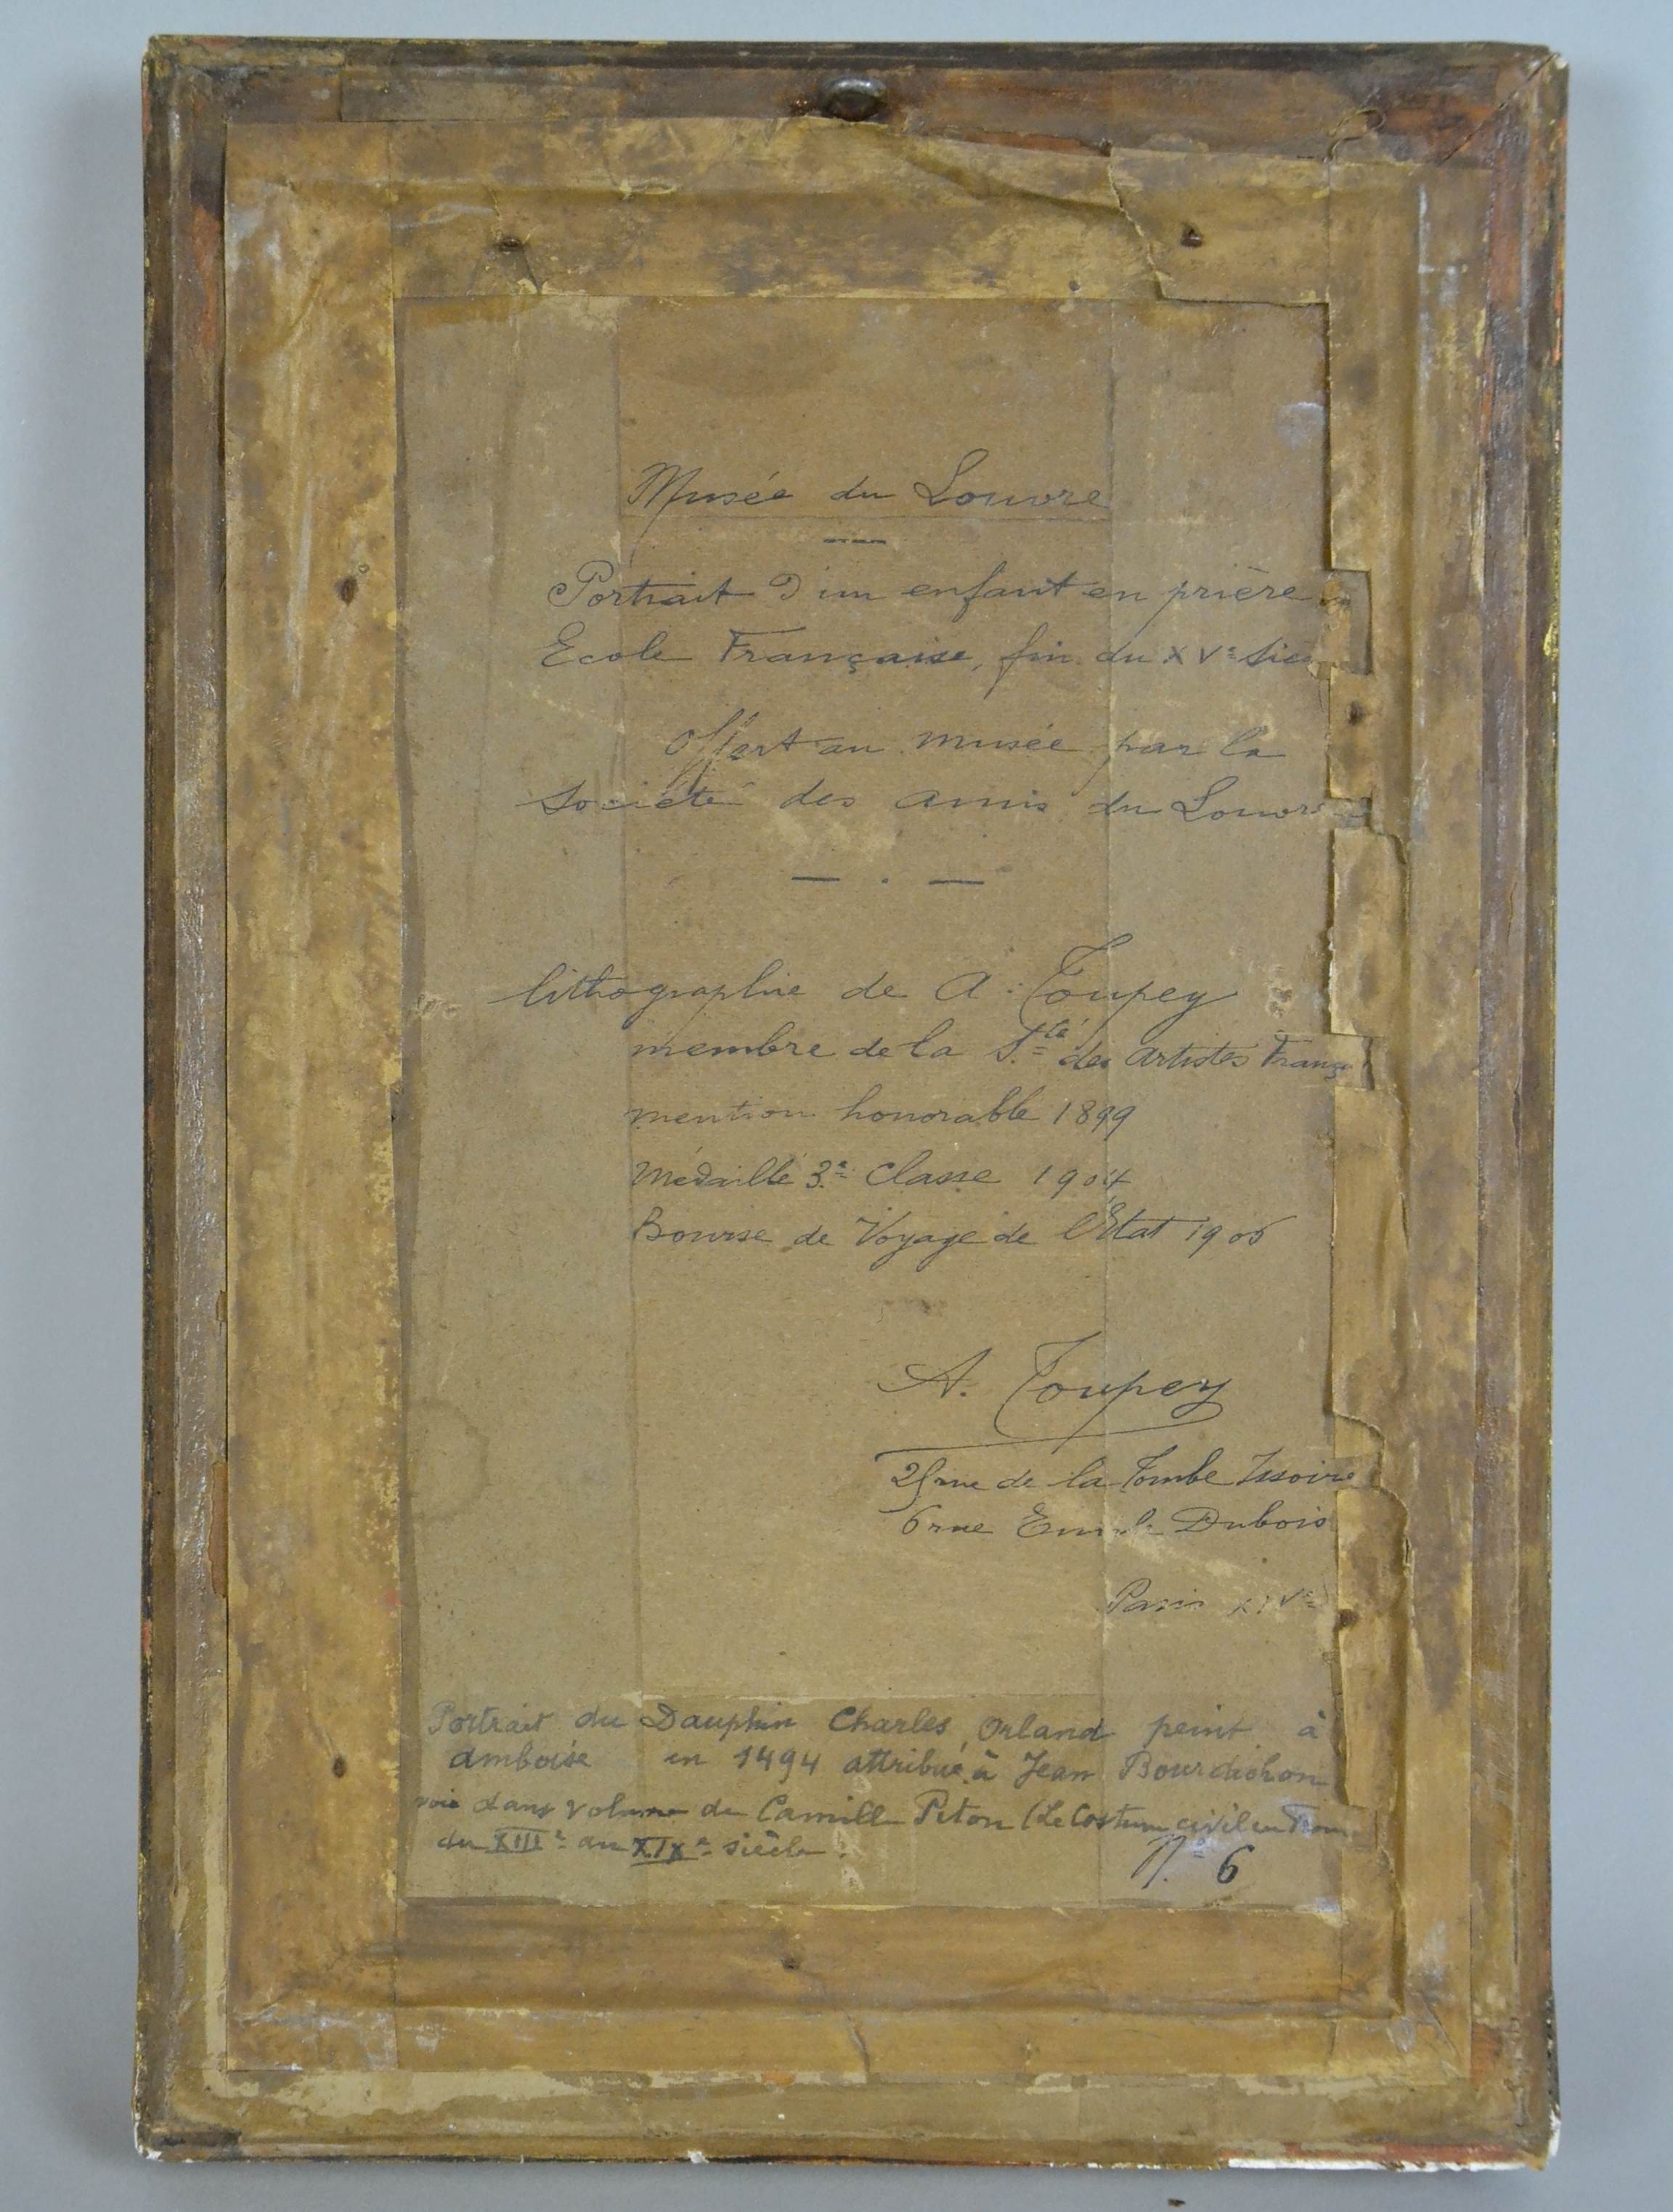 Musée du Louvre
Portrait d'un enfant en prière
Ecole Française, fin du XVe sièc
offert au musée par la
Société des amis du Louvre
lithographie de A. Toupey
membre de la S.té des Artistes França
mention honorable 1899
Médaille 3.e Classe 1904
Bourse de Voyage de l'Etat 1905
A. Toupey
rue de la Tombe Issoire
6 rue Emile Dubois
Paris XIVe
Portrait du Dauphin Charles, Orland peint à
amboise en 1494 attribué à Jean Bourdichon
voir dans volume de Camille Piton (Le Costume civil en Fran
du XIIIe au XIXe siècle.
N.o 6